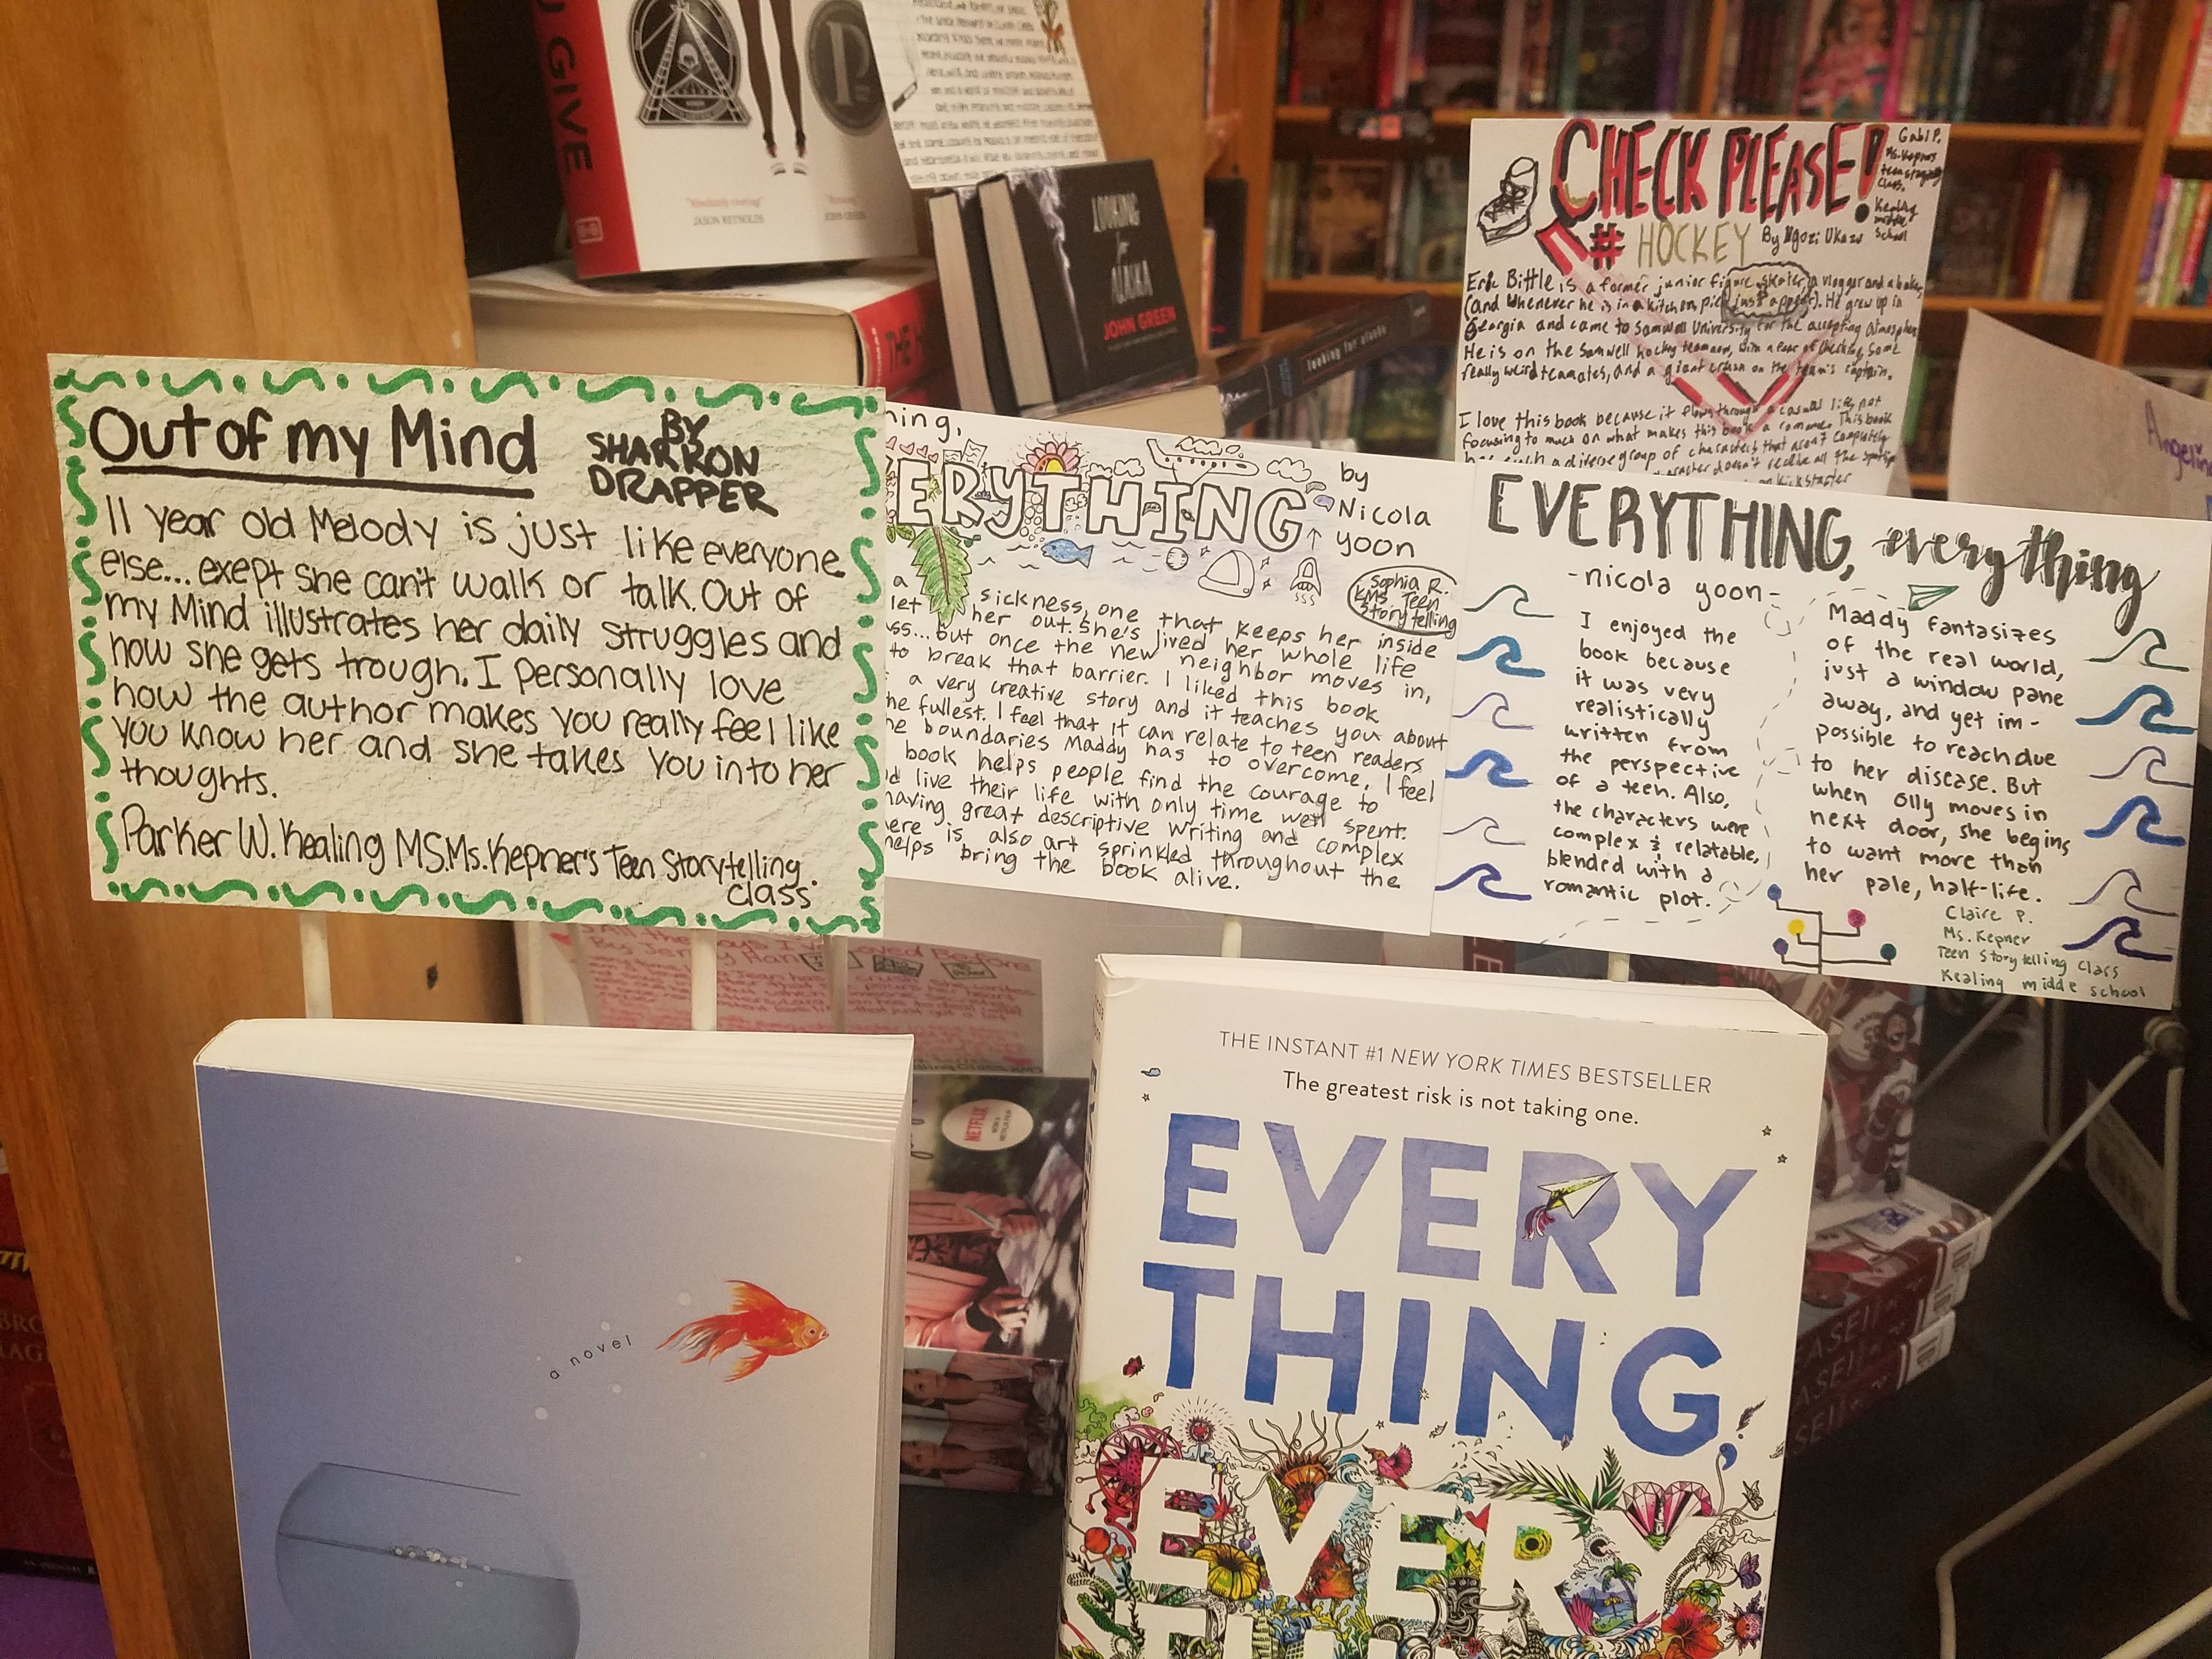 U GIVE
"Absolutely riveting"
JASON REYNOLDS
JOHN GREEN
LOOKING
for
ALASKA
JOHN GREEN
looking for alaska
THE H
CHECK PLEASE!
Gabi P.
Ms. Kepners
class,
Kealing
middle
school
# HOCKEY By Ngozi Ukazu
Eric Bittle is a former junior figure skater, a vlogger and a baker
(and whenever he is in a kitchen, pies just appear). He grew up in
Georgia and came to Samwell University for the accepting atmosphere
He is on the Samwell hockey team now, with a fear of checking, some
really weird teamates, and a giant crush on the team's captain.
I love this book because it flows through a casual life, not
focusing to much on what makes this book a romance. This book
has such a diverse group of characters that aren't completely
character doesn't recieve all the spotlight
on kickstarter
Angelin
Out of my Mind
BY
SHARRON
DRAPPER
11 year old Melody is just like everyone
else... exept she can't walk or talk. Out of
my Mind illustrates her daily struggles and
how she gets trough. I personally love
how the author makes you really feel like
you know her and she takes you into her
thoughts.
Parker W. Kealing MS. Ms. Kepner's Teen Storytelling.
class
hing,
ERYTHING
by
Nicola
yoon
Sophia R.
KMS Teen
Storytelling
a sickness, one that keeps her inside
let her out. She's lived her whole life
ss... but once the new neighbor moves in,
to break that barrier. I liked this book
a very creative story and it teaches you about
he fullest. I feel that it can relate to teen readers
he boundaries Maddy has to overcome. I feel
book helps people find the courage to
d live their life with only time well spent.
having great descriptive writing and complex
ere is also art sprinkled throughout the
helps bring the book alive.
EVERYTHING, everything
-nicola yoon-
I enjoyed the
book because
it was very
realistically
written from
the perspective
of a teen. Also,
the characters were
complex & relatable,
blended with a
romantic plot.
Maddy fantasizes
of the real world,
just a window pane
away, and yet im-
possible to reach due
to her disease. But
when Olly moves in
next door, she begins
to want more than
her pale, half-life.
Claire P.
Ms. Kepner
Teen Storytelling Class
Kealing midde school
All the Boys I've Loved Before
By Jenny Han
NETFLIX
NETFLIX FILM
a novel
THE INSTANT #1 NEW YORK TIMES BESTSELLER
The greatest risk is not taking one.
EVERY
THING,
EVERY